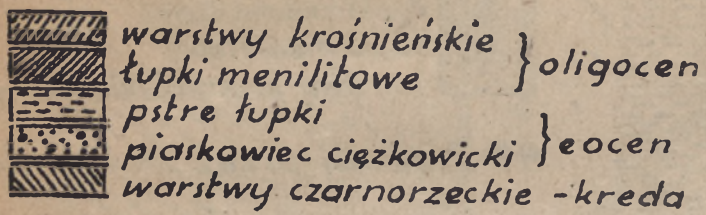 warstwy krośnieńskie
łupki menilitowe } oligocen
pstre łupki
piaskowiec ciężkowicki } eocen
warstwy czarnorzeckie - kreda